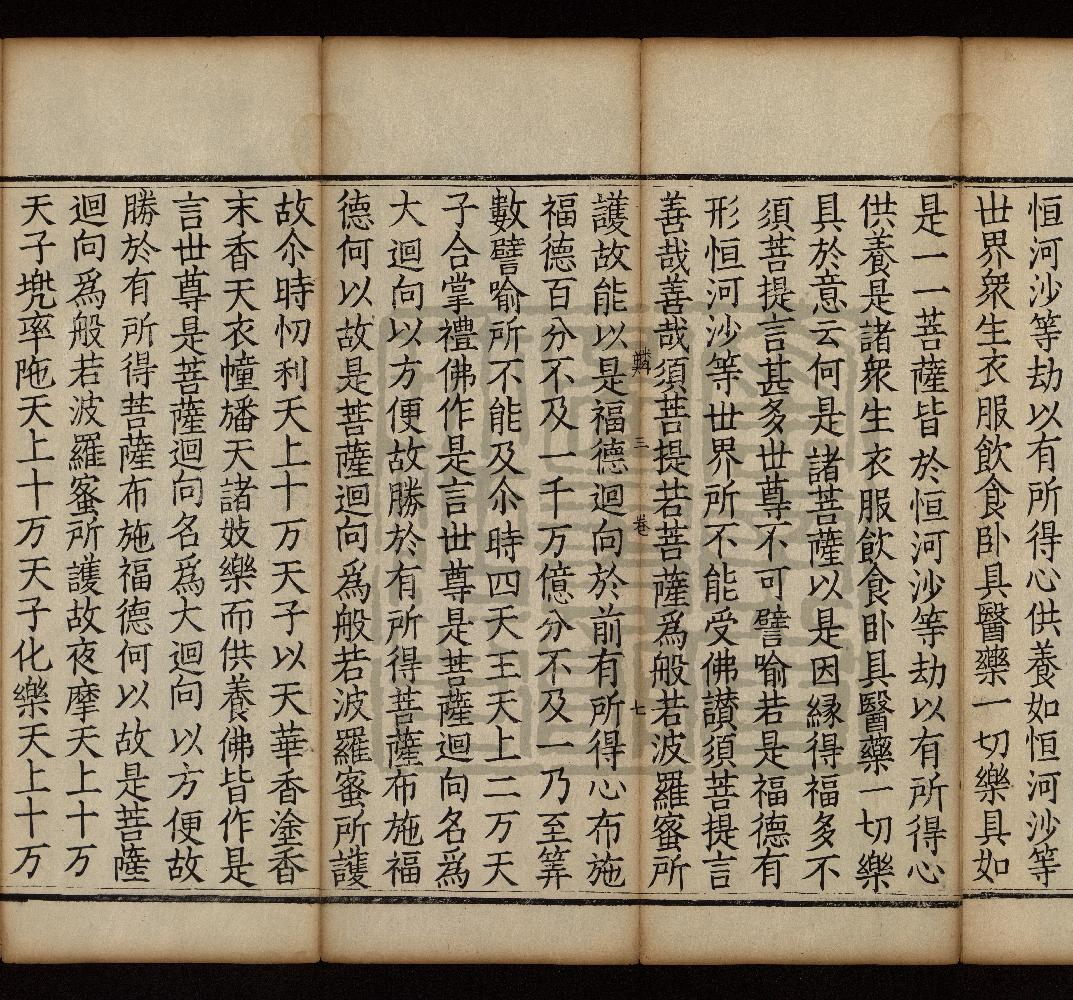 恒河沙等劫以有所得心供養如恒河沙等
世界衆生衣服飲食卧具醫藥一切樂具如
是一一菩薩皆於恒河沙等劫以有所得心
供養是諸衆生衣服飲食卧具醫藥一切樂
具於意云何是諸菩薩以是因縁得福多不
須菩提言甚多世尊不可譬喻若是福德有
形恒河沙等世界所不能受佛讃須菩提言
善哉善哉須菩提若菩薩爲般若波羅蜜所
三 卷 七
護故能以是福德迴向於前有所得心布施
福德百分不及一千万億分不及一乃至筭
數譬喻所不能及尒時四天王天上二万天
子合掌禮佛作是言世尊是菩薩迴向名爲
大迴向以方便故勝於有所得菩薩布施福
德何以故是菩薩迴向爲般若波羅蜜所護
故尒時忉利天上十万天子以天華香塗香
末香天衣幢旛天諸妓樂而供養佛皆作是
言世尊是菩薩迴向名爲大迴向以方便故
勝於有所得菩薩布施福德何以故是菩薩
迴向爲般若波羅蜜所護故夜摩天上十万
天子兠率陁天上十万天子化樂天上十万